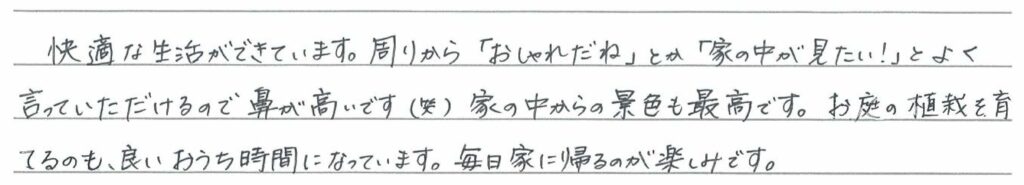 快適な生活ができています。周りから「おしゃれだね」とか「家の中が見たい!」とよく
言っていただけるので鼻が高いです(笑)家の中からの景色も最高です。お庭の植栽を育
てるのも、良いおうち時間になっています。毎日家に帰るのが楽しみです。